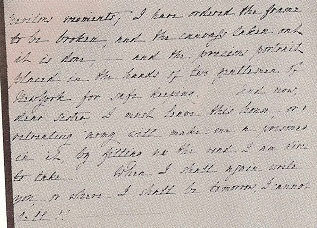 perilous moments; I have ordered the frame
to be broken, and the canvass taken out
it is done, — and the precious portrait
placed in the hands of two gentlemen of
New York for safe keeping. And now,
dear sister I must leave this house, or
retreating army will make me a prisoner
in it by filling up the road I am dire
to take. When I shall again write
you, or where I shall be tomorrow, I cannot
tell!!